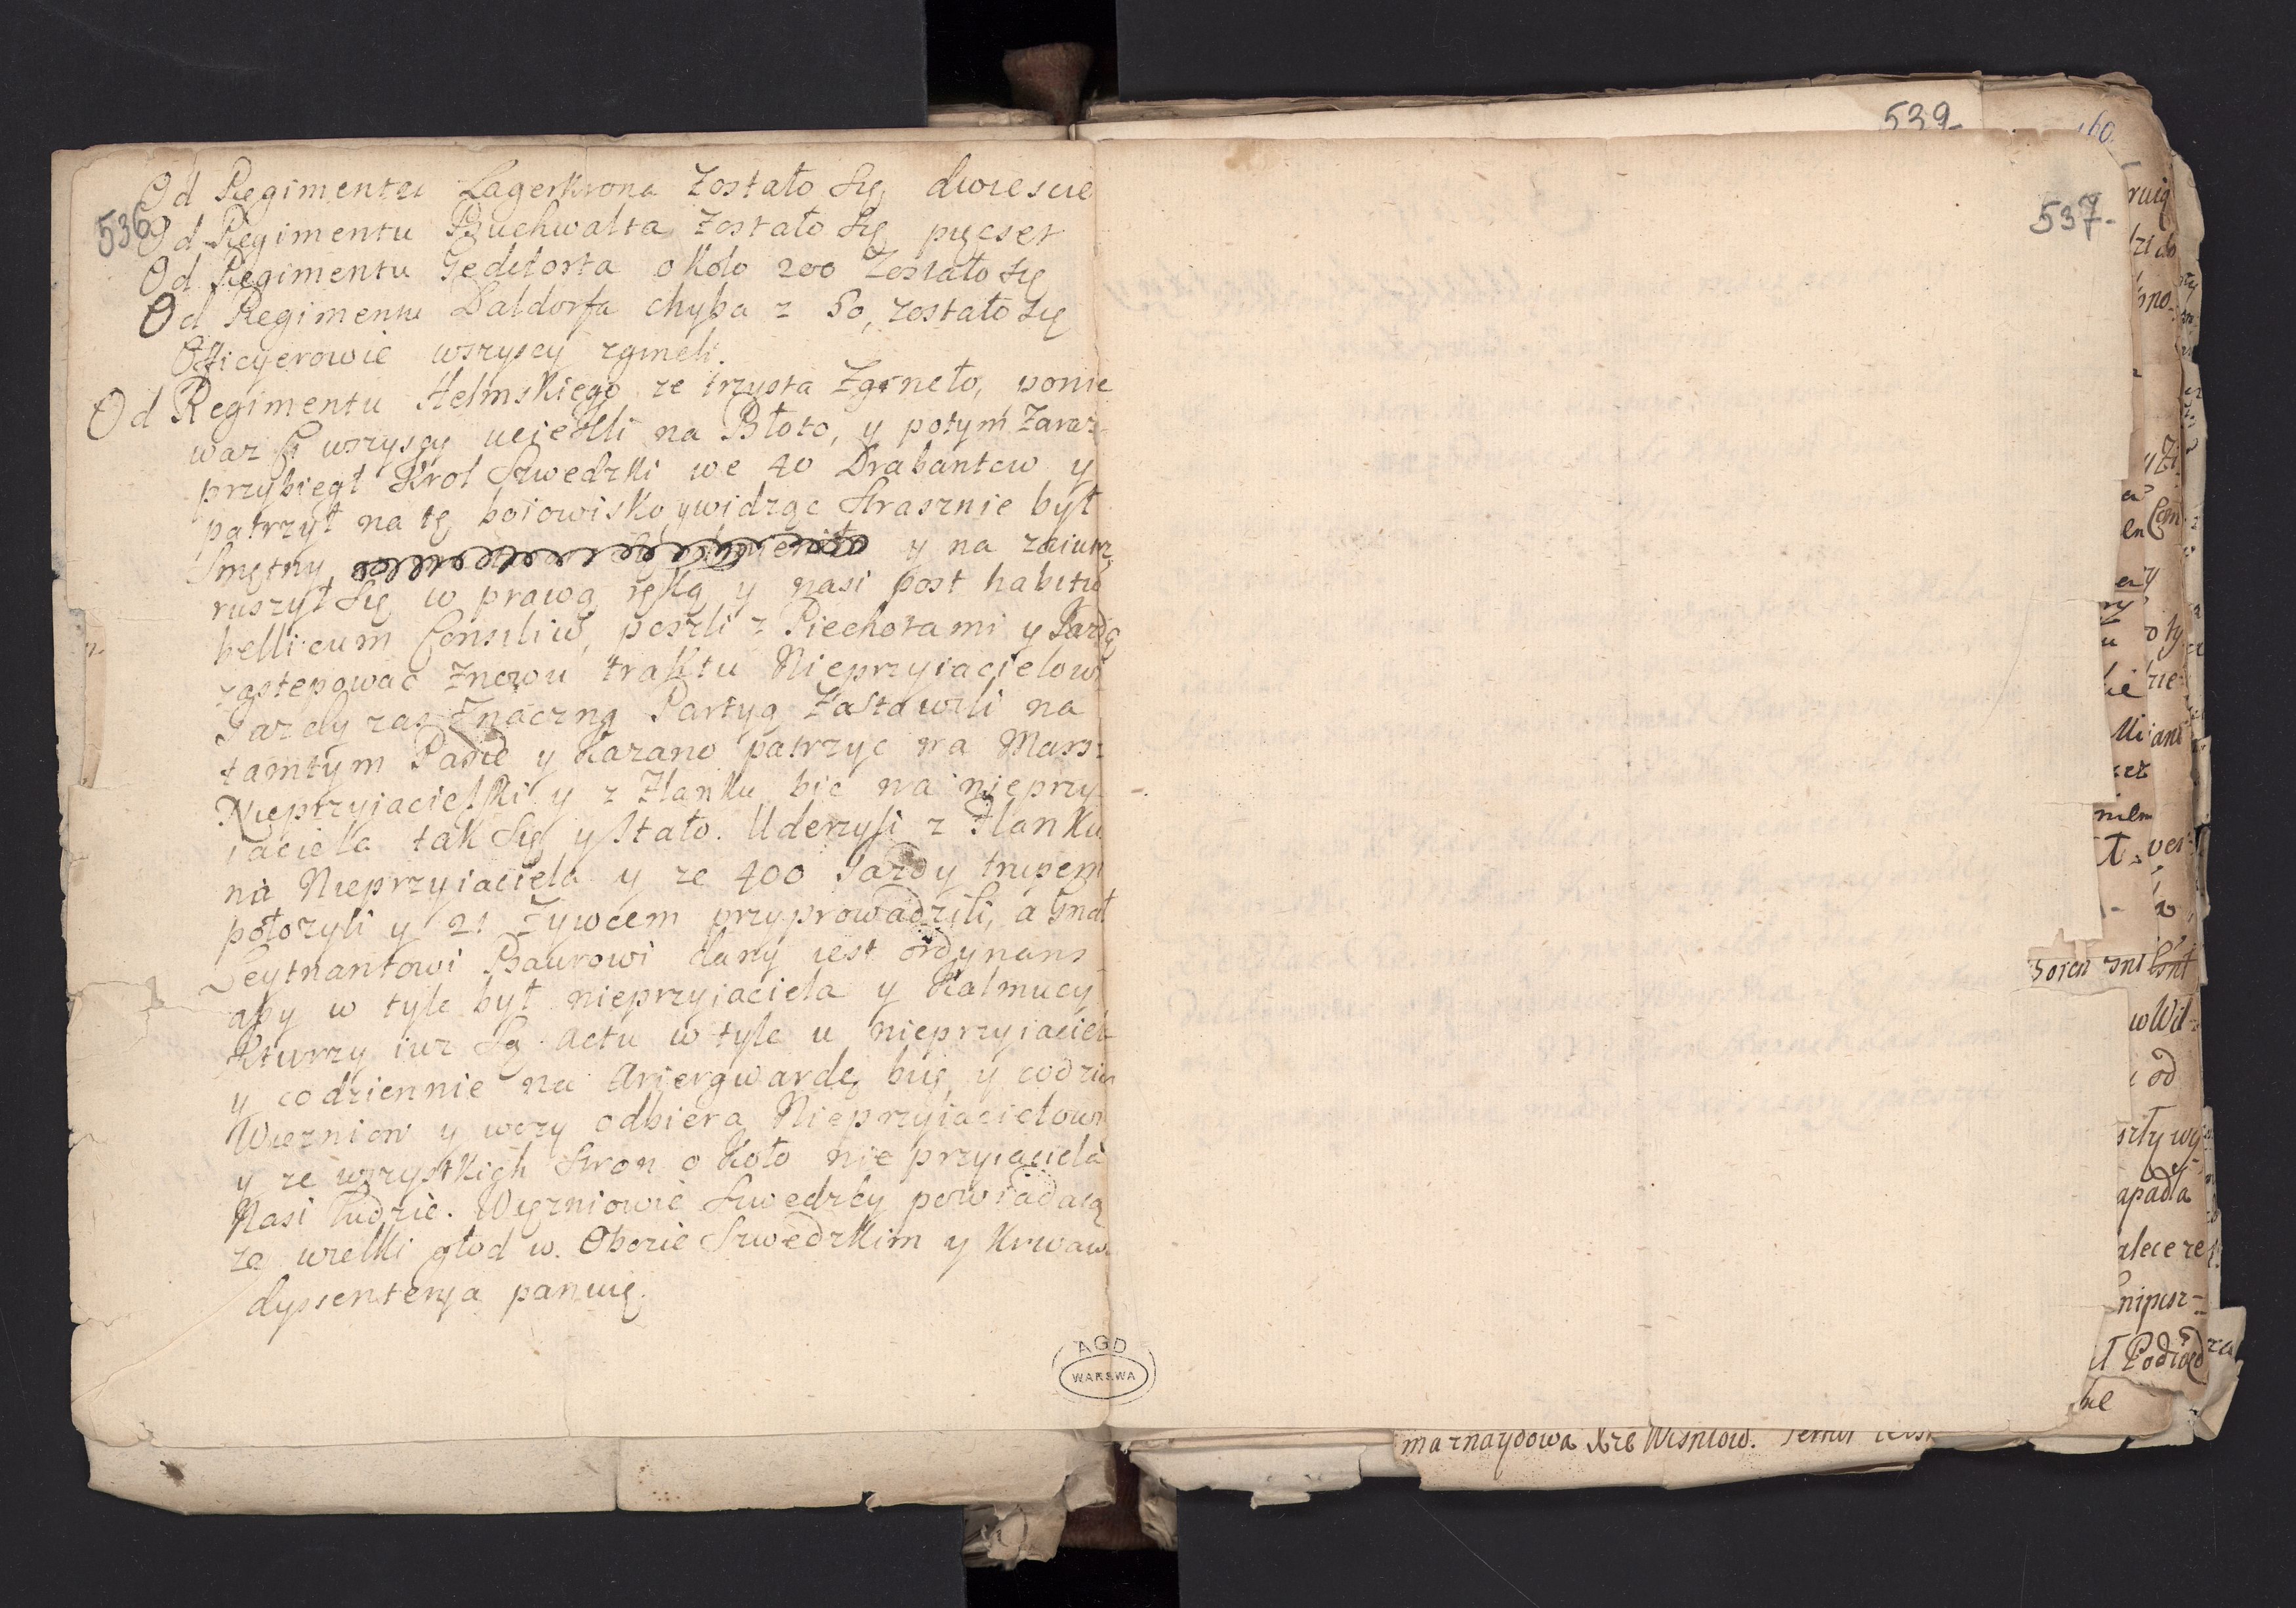 539-
160.
536
537-
Od Regimentu Lagerkrona Zostało Się dwiescie
Od Regimentu Buchwalta Zostało Się pięcset
Od Regimentu Gedefosta około 200 Zostało się
Od Regimentu Daldorfa chyba z 50, zostało się
Officyerowie wszyscy zgineli.
Od Regimentu Helmskiego ze trzysta Zgineło, ponie
waz si wszyscy uciekli na Błoto, y potym Zaraz
przybiegł Krol Szwedzki we 40 Drabantow y
patrzył na tę boiowisko, y widząc Strasznie był
Smętny y na zaiutrz
ruszył Się w prawą rękę y nasi post habitu
bellicum Consiliu, poszli z Piechotami y Jazdą
zastempowac Znowu traktu Nieprzyiacielowi
Jazdy zas Znaczną Partyą Zastawili na
tamtym Pasie y kazano patrzyc na Mars:
Nieprzyiacielski y z Flanku bic na nieprzy-
iaciela tak Się y Stało. Uderzyli z Flanku
na Nieprzyiaciela y ze 400 Jazdy trupem
położyli y 21 Zywcem przyprowadzili, a Gnał
Leytnantowi Baurowi dany iest ordynans
aby w tyle był nieprzyiaciela y Kalmucy
Kturzy iuz Są actu w tyle u nieprzyiaciela
y codziennie na Ariergwardę biię y codzien
Wiezniow y wozy odbiera Nieprzyiacielowi
y ze wszystkich Stron około nieprzyiaciela
Nasi ludzie. Więzniowie Szwedzcy powiadaią
ze wielki głod w Obozie Szwedzkim y Krwawa
dyssenterya panuię.
AGD
WARSWA
marnaydowa Xze Wisniow.